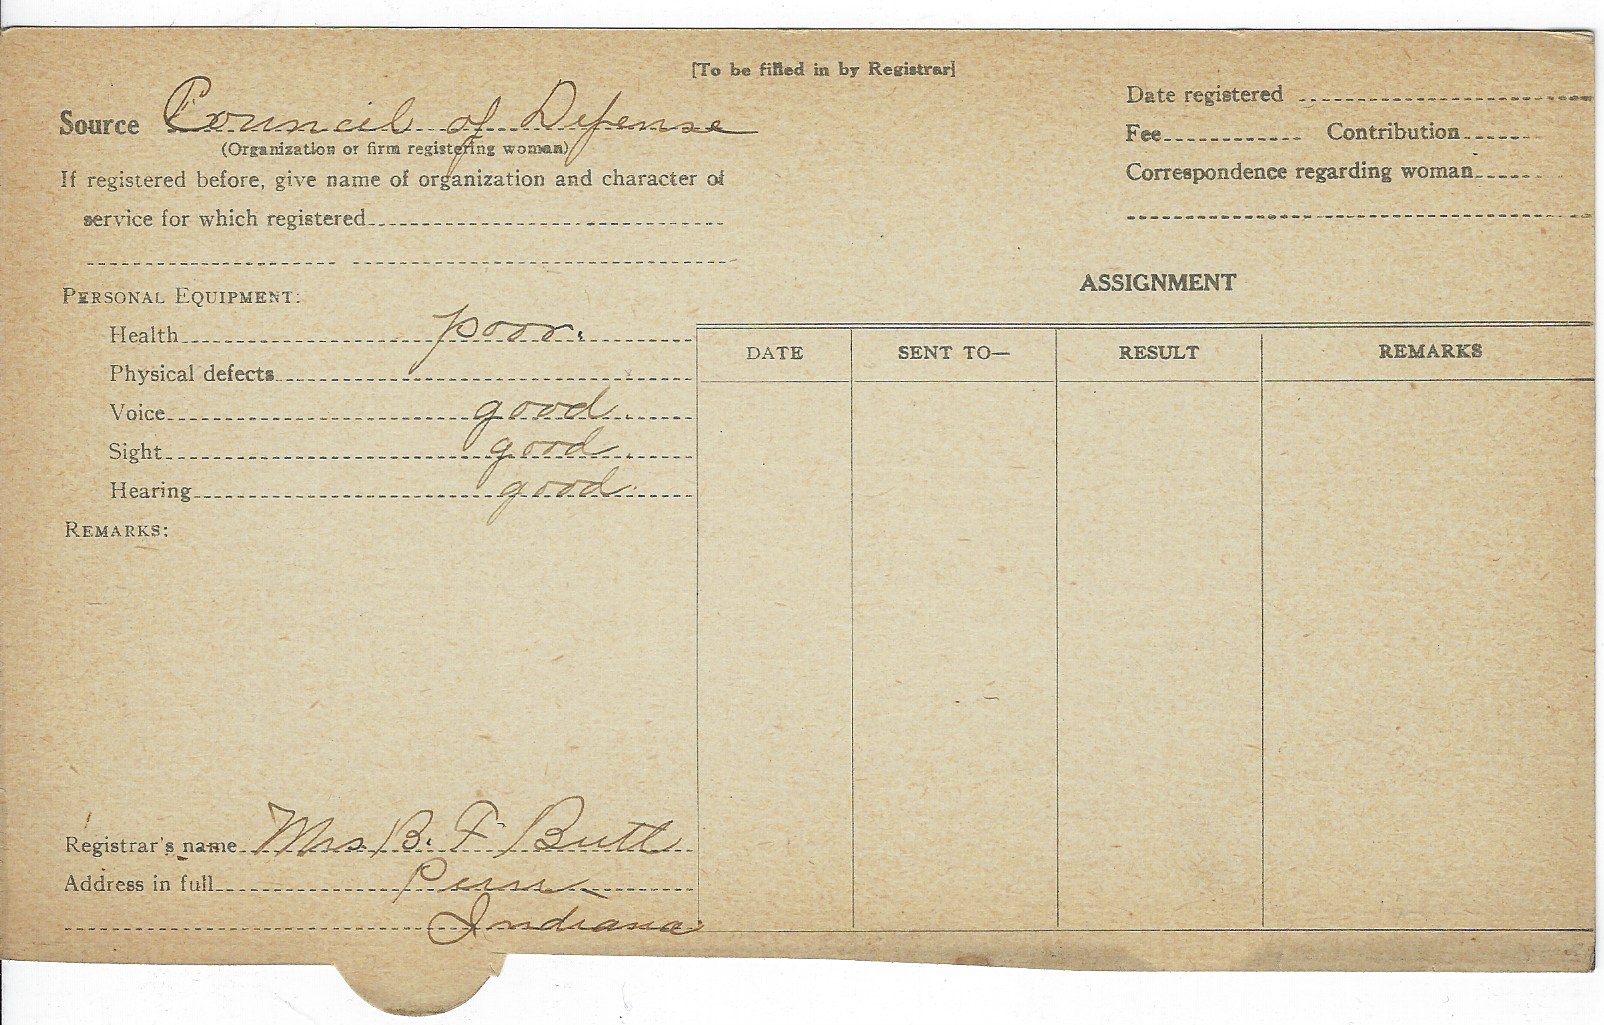 [To be filled in by Registrar]
Source Council of Defense
(Organization or firm registering woman)
If registered before, give name of organization and character of
service for which registered
Personal Equipment:
Health poor.
Physical defects
Voice good
Sight good
Hearing good
Remarks:
Registrar's name Mrs. B. F. Butt
Address in full Peru
Indiana
Date registered
Fee Contribution
Correspondence regarding woman
ASSIGNMENT
DATE SENT TO— RESULT REMARKS